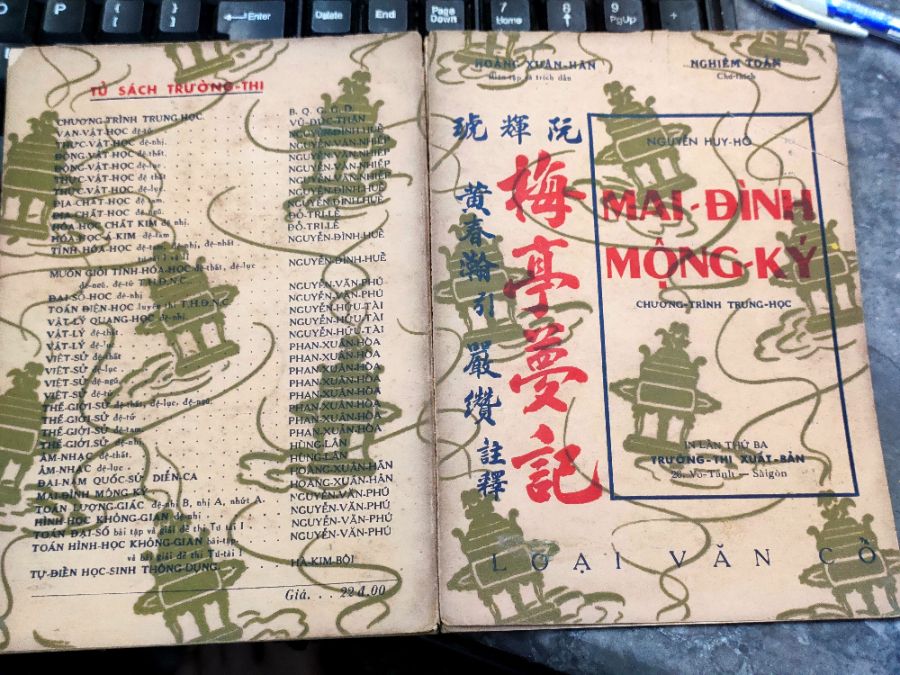 TỦ SÁCH TRƯỜNG-THI
CHƯƠNG-TRÌNH TRUNG-HỌC B. Q. G. G. D.
VẠN-VẬT-HỌC đệ-tứ VŨ-ĐỨC-THẬN
THỰC-VẬT-HỌC đệ-nhị NGUYỄN-ĐÌNH-HUỀ
ĐỘNG-VẬT-HỌC đệ-thất NGUYỄN-VĂN-NHIẾP
ĐỘNG-VẬT-HỌC đệ-lục NGUYỄN-VĂN-NHIẾP
THỰC-VẬT-HỌC đệ-thất NGUYỄN-VĂN-NHIẾP
THỰC-VẬT-HỌC đệ-lục NGUYỄN-VĂN-NHIẾP
ĐỊA-CHẤT-HỌC đệ-tam NGUYỄN-ĐÌNH-HUỀ
ĐỊA-CHẤT-HỌC đệ-ngũ NGUYỄN-ĐÌNH-HUỀ
HÓA-HỌC CHẤT KIM đệ-nhị ĐỖ-TRÍ-LỄ
HÓA-HỌC Á-KIM đệ-tam ĐỖ-TRÍ-LỄ
TÍNH-HÓA-HỌC đệ-tam, đệ-nhị, đệ-nhất NGUYỄN-ĐÌNH-HUỀ
tú-tài I và II
MUỐN GIỎI TÍNH-HÓA-HỌC đệ-thất, đệ-lục NGUYỄN-ĐÌNH-HUỀ
đệ-ngũ, đệ-tứ T.H.Đ.N.C.
ĐẠI-SỐ-HỌC đệ-nhị NGUYỄN-VĂN-PHÚ
TOÁN ĐIỆN-HỌC luyện thi T.H.Đ.N.C. NGUYỄN-VĂN-PHÚ
VẬT-LÝ QUANG-HỌC đệ-nhị NGUYỄN-HỮU-TÀI
VẬT-LÝ đệ-thất NGUYỄN-HỮU-TÀI
VẬT-LÝ đệ-lục NGUYỄN-HỮU-TÀI
VIỆT-SỬ đệ-thất PHAN-XUÂN-HÒA
VIỆT-SỬ đệ-lục PHAN-XUÂN-HÒA
VIỆT-SỬ đệ-ngũ PHAN-XUÂN-HÒA
VIỆT-SỬ đệ-tứ PHAN-XUÂN-HÒA
THẾ-GIỚI-SỬ đệ-thất, đệ-lục, đệ-ngũ PHAN-XUÂN-HÒA
THẾ-GIỚI-SỬ đệ-tứ PHAN-XUÂN-HÒA
THẾ-GIỚI-SỬ đệ-tam PHAN-XUÂN-HÒA
THẾ-GIỚI-SỬ đệ-nhị PHAN-XUÂN-HÒA
ÂM-NHẠC đệ-thất HÙNG-LÂN
ÂM-NHẠC đệ-lục HÙNG-LÂN
ĐẠI-NAM QUỐC-SỬ DIỄN-CA HOÀNG-XUÂN-HÃN
MAI-ĐÌNH MỘNG KÝ HOÀNG-XUÂN-HÃN
TOÁN LƯỢNG-GIÁC đệ-nhị B, nhị A, nhứt A NGUYỄN-VĂN-PHÚ
HÌNH-HỌC KHÔNG-GIAN đệ-nhị NGUYỄN-VĂN-PHÚ
TOÁN ĐẠI-SỐ bài tập và giải đề thi Tú-tài I NGUYỄN-VĂN-PHÚ
TOÁN HÌNH-HỌC KHÔNG-GIAN bài-tập NGUYỄN-VĂN-PHÚ
và bài giải đề thi Tú-tài I
TỰ-ĐIỂN HỌC-SINH THÔNG DỤNG HÀ-KIM-BÔI
Giá . . . 22đ.00
HOÀNG XUÂN-HÃN
Biên-tập và trích dẫn
NGHIÊM TOẢN
Chú-thích
阮輝琥
梅亭夢記
黄春瀚引
嚴瓚註釋
NGUYỄN HUY-HỔ
MAI-ĐÌNH
MỘNG-KÝ
CHƯƠNG-TRÌNH TRUNG-HỌC
IN LẦN THỨ BA
TRƯỜNG-THI XUẤT-BẢN
26, Võ-Tánh — Sàigòn
LOẠI VĂN CỔ
P
Enter
Delete
End
Page
Down
7
Home
8
9
PgUp
+